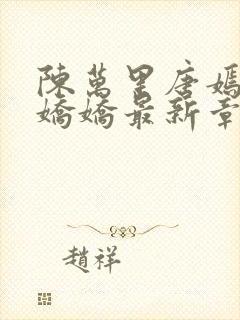 陳萬里唐嫣
嬌嬌最新章
趙祥